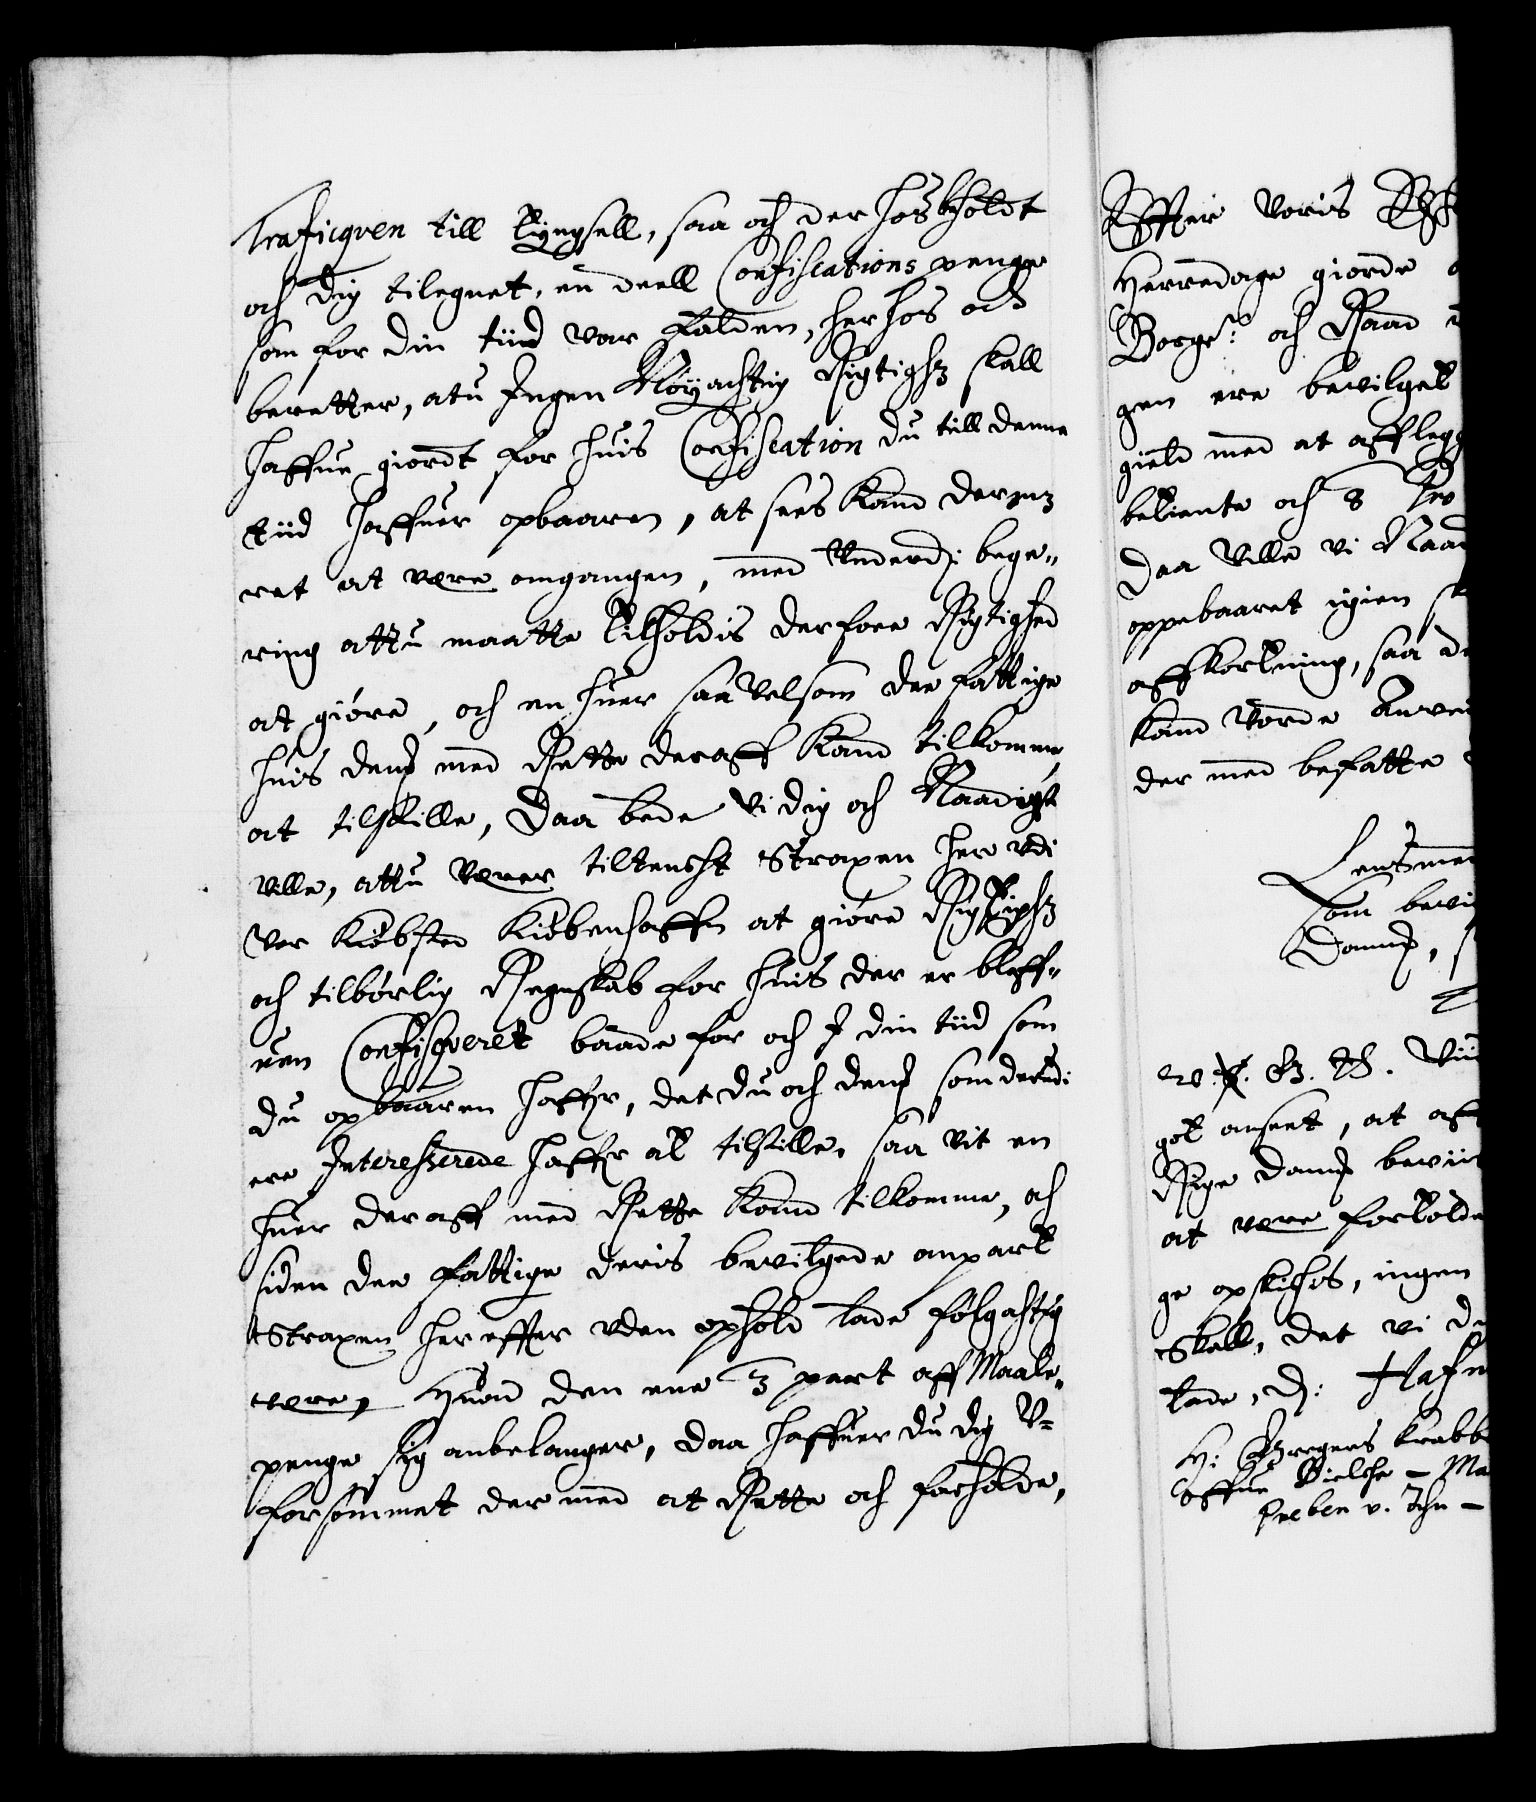 Traficqven till Kyngsell, saa och der hos beholdt
och dig tilegnet, en deell Confiscations penge
som for din tiid var falden, her hos och
beretter, at du Ingen Nøyachtig Rigtighed skall
haffue giordt for huis Confiscation du till denne
tiid haffuer opbaaren, at sees kand derud
ret at vere omgangen, med Underd: bege„
ring attu maatte tilholdis derfore Rigtighed
at giøre, och en huer saa velsom dee fattige
huis dennem med Rette deraff kand tilkomme,
at tilstille, Daa bede vi dig och Naadigst
ville, attu verer tiltencht Straxen her udi
Vor Kiøbsted Kiøbenhaffn at giøre Rigtighed
och tilbørlig Regnskab for huis der er bleff„
uen Confisqveret baade for och I din tiid som
du opbaaren haffuer, det du och dennem som derudi
ere Interesserede haffuer at tilstille, saa vit en
huer deraff med Rette kand tilkomme, och
siden dee fattige deris bevilgede anpart
Straxen her effter uden ophold lade følgachtig
vere, Huad den ene 3 part aff Maale„
penge sig anbelanger, daa haffuer du dig U=
forsømmet der med at Rette och forholde,
Effter Voris
Herredage giorde
Borge: och Raad
gen ere bevilget
gield med at afflegg
beliente och 8 Pro
Daa Ville vi Naad
oppebaaret igien
affkortning, saa de
kand Vorde Anven
der med befatte
Lensmen
som bevi
Dannem,
got anseet, at aff
Rige Dannem bevilt
at vere forholde
ge opskichis, ingen
Skall, det vi de
lade, D: Hafn
H: Gregers Krabbe
Offue Bielche – Ma
Preben v. Ahn –